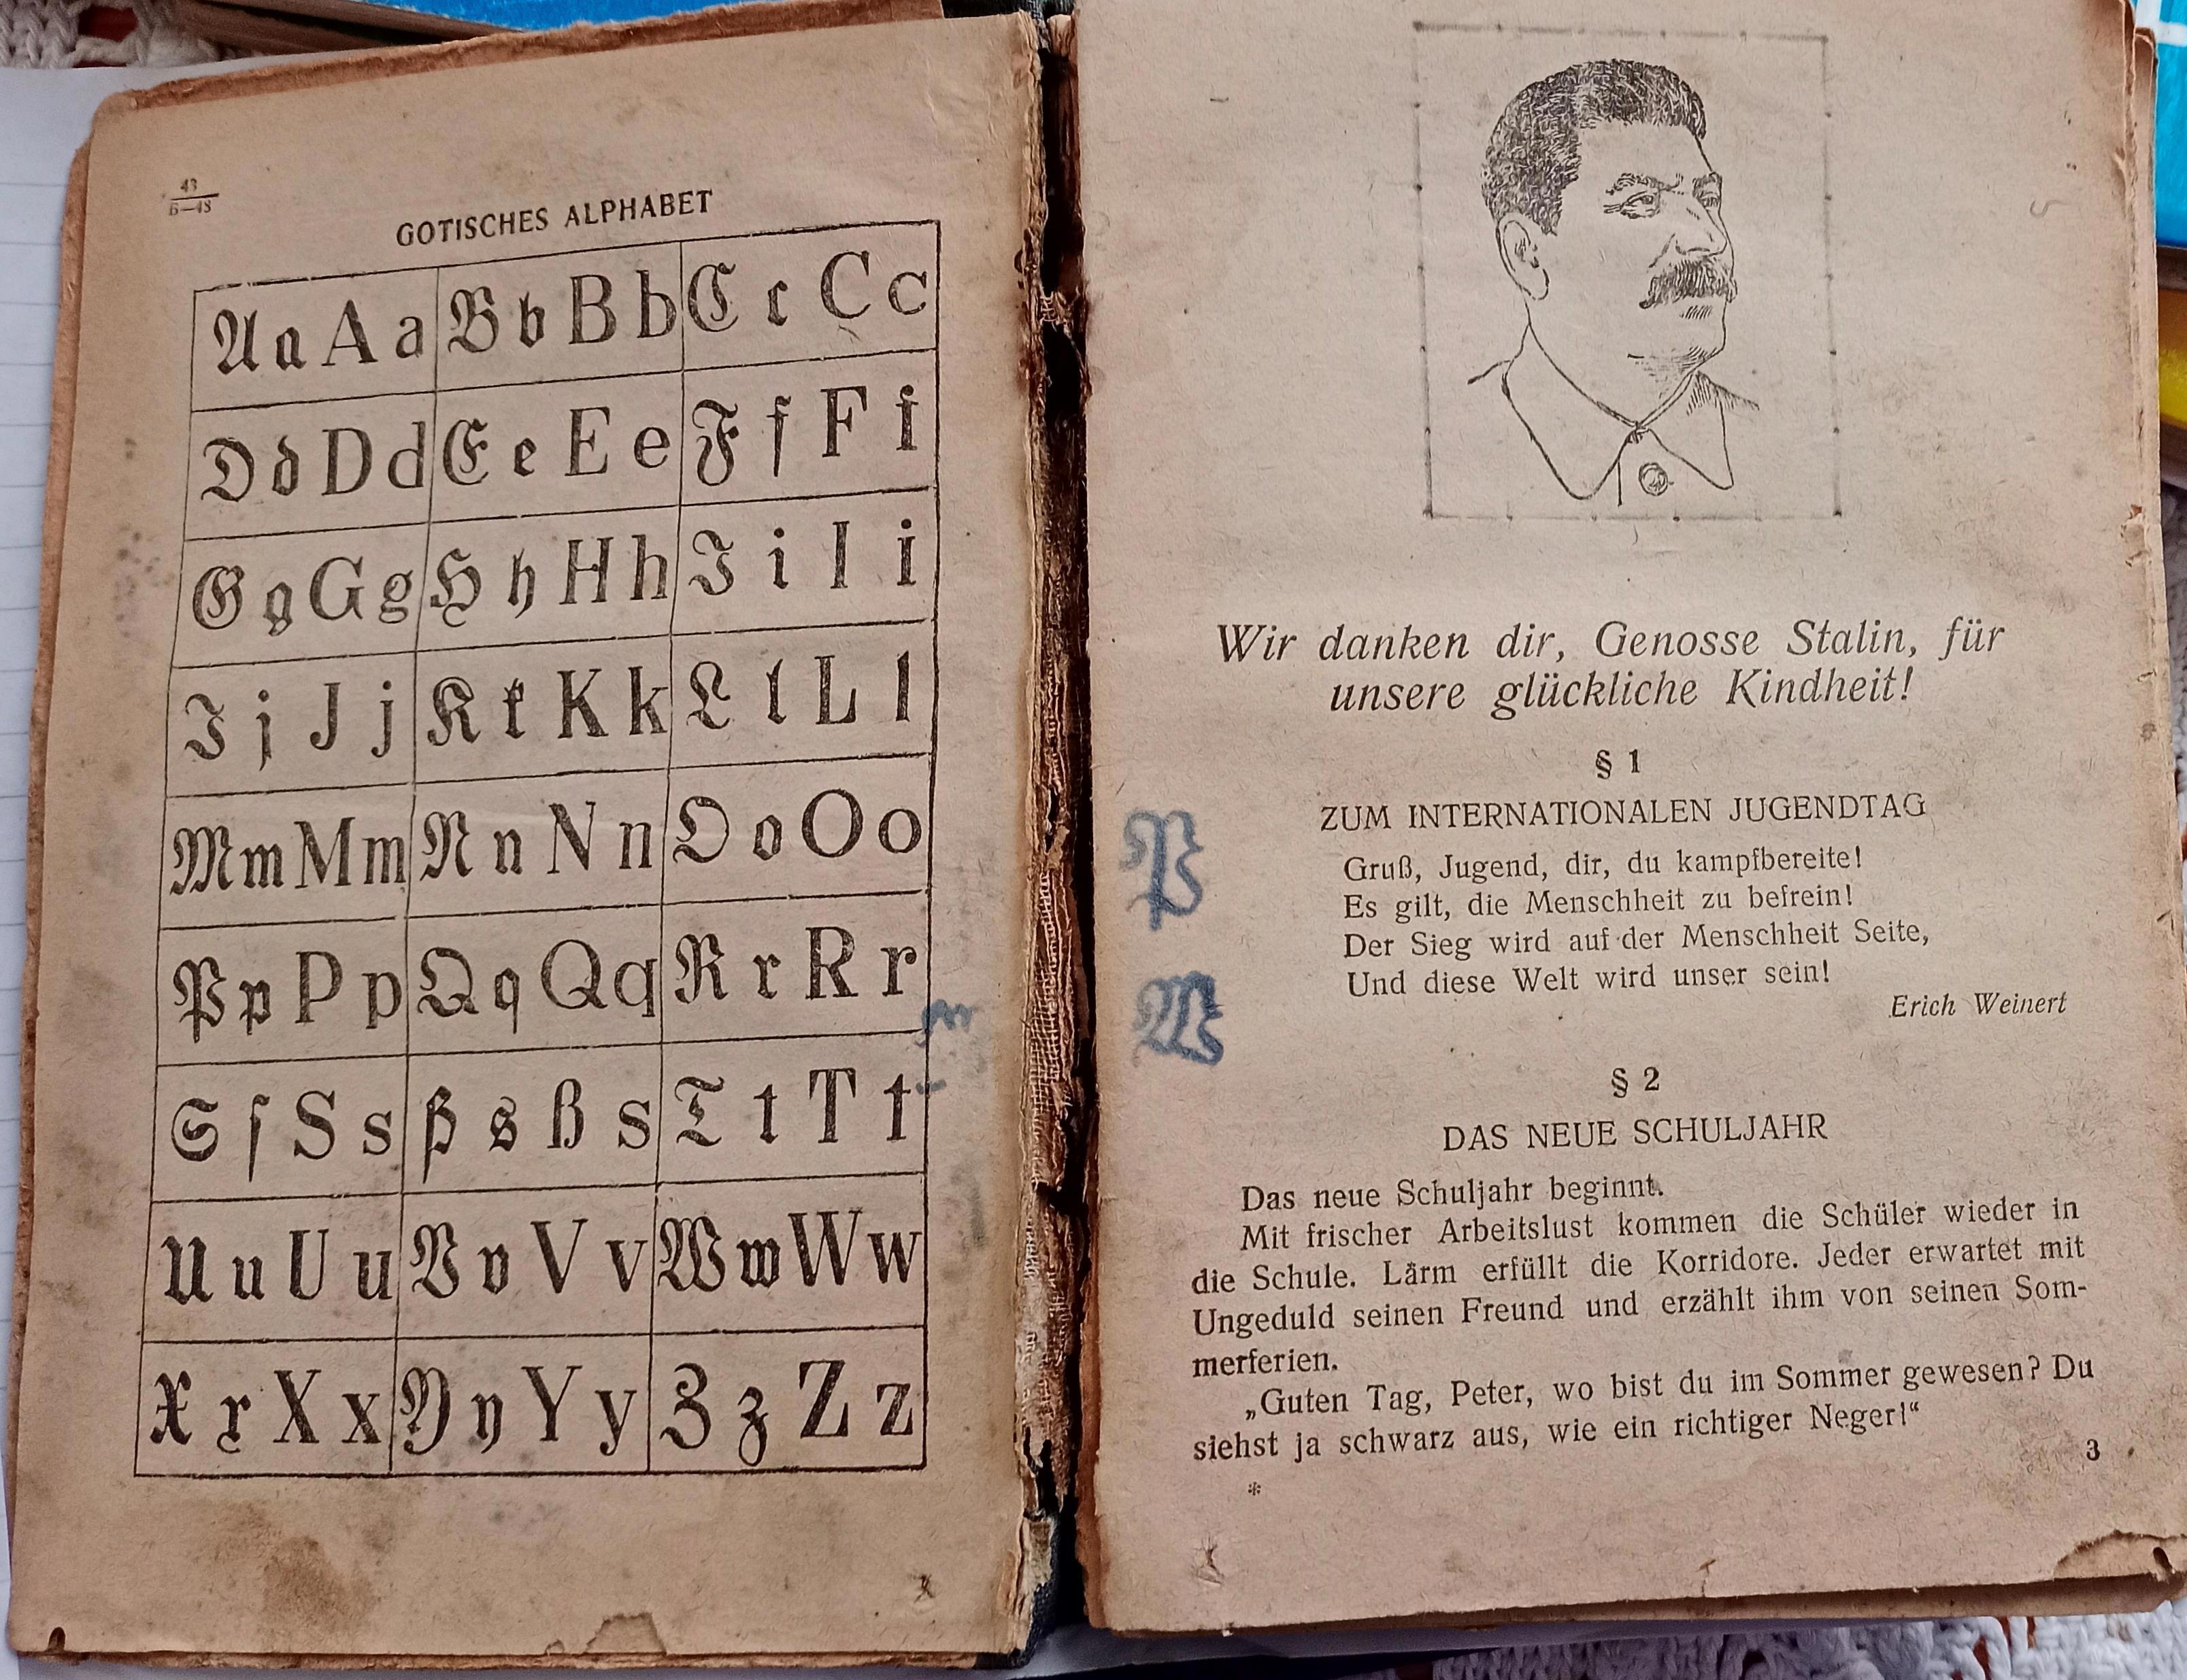 43
Б—48
GOTISCHES ALPHABET
𝔄 𝔞 A a 𝔅 𝔟 B b ℭ 𝔠 C c
𝔇 𝔡 D d 𝔈 𝔢 E e 𝔉 𝔣 F f
𝔊 𝔤 G g ℌ 𝔥 H h ℑ 𝔦 I i
𝔍 𝔧 J j 𝔎 𝔨 K k 𝔏 𝔩 L l
𝔐 𝔪 M m 𝔑 𝔫 N n 𝔒 𝔬 O o
𝔓 𝔭 P p 𝔔 𝔮 Q q ℜ 𝔯 R r
𝔖 ſ S s ß 𝔰 ß s 𝔗 𝔱 T t
𝔘 𝔲 U u 𝔙 𝔳 V v 𝔚 𝔴 W w
𝔛 𝔵 X x 𝔜 𝔶 Y y ℨ 𝔷 Z z
Wir danken dir, Genosse Stalin, für
unsere glückliche Kindheit!
§ 1
ZUM INTERNATIONALEN JUGENDTAG
Gruß, Jugend, dir, du kampfbereite!
Es gilt, die Menschheit zu befrein!
Der Sieg wird auf der Menschheit Seite,
Und diese Welt wird unser sein!
Erich Weinert
𝔓
§ 2
DAS NEUE SCHULJAHR
Das neue Schuljahr beginnt.
Mit frischer Arbeitslust kommen die Schüler wieder in
die Schule. Lärm erfüllt die Korridore. Jeder erwartet mit
Ungeduld seinen Freund und erzählt ihm von seinen Som-
merferien.
„Guten Tag, Peter, wo bist du im Sommer gewesen? Du
siehst ja schwarz aus, wie ein richtiger Neger!“
*
3